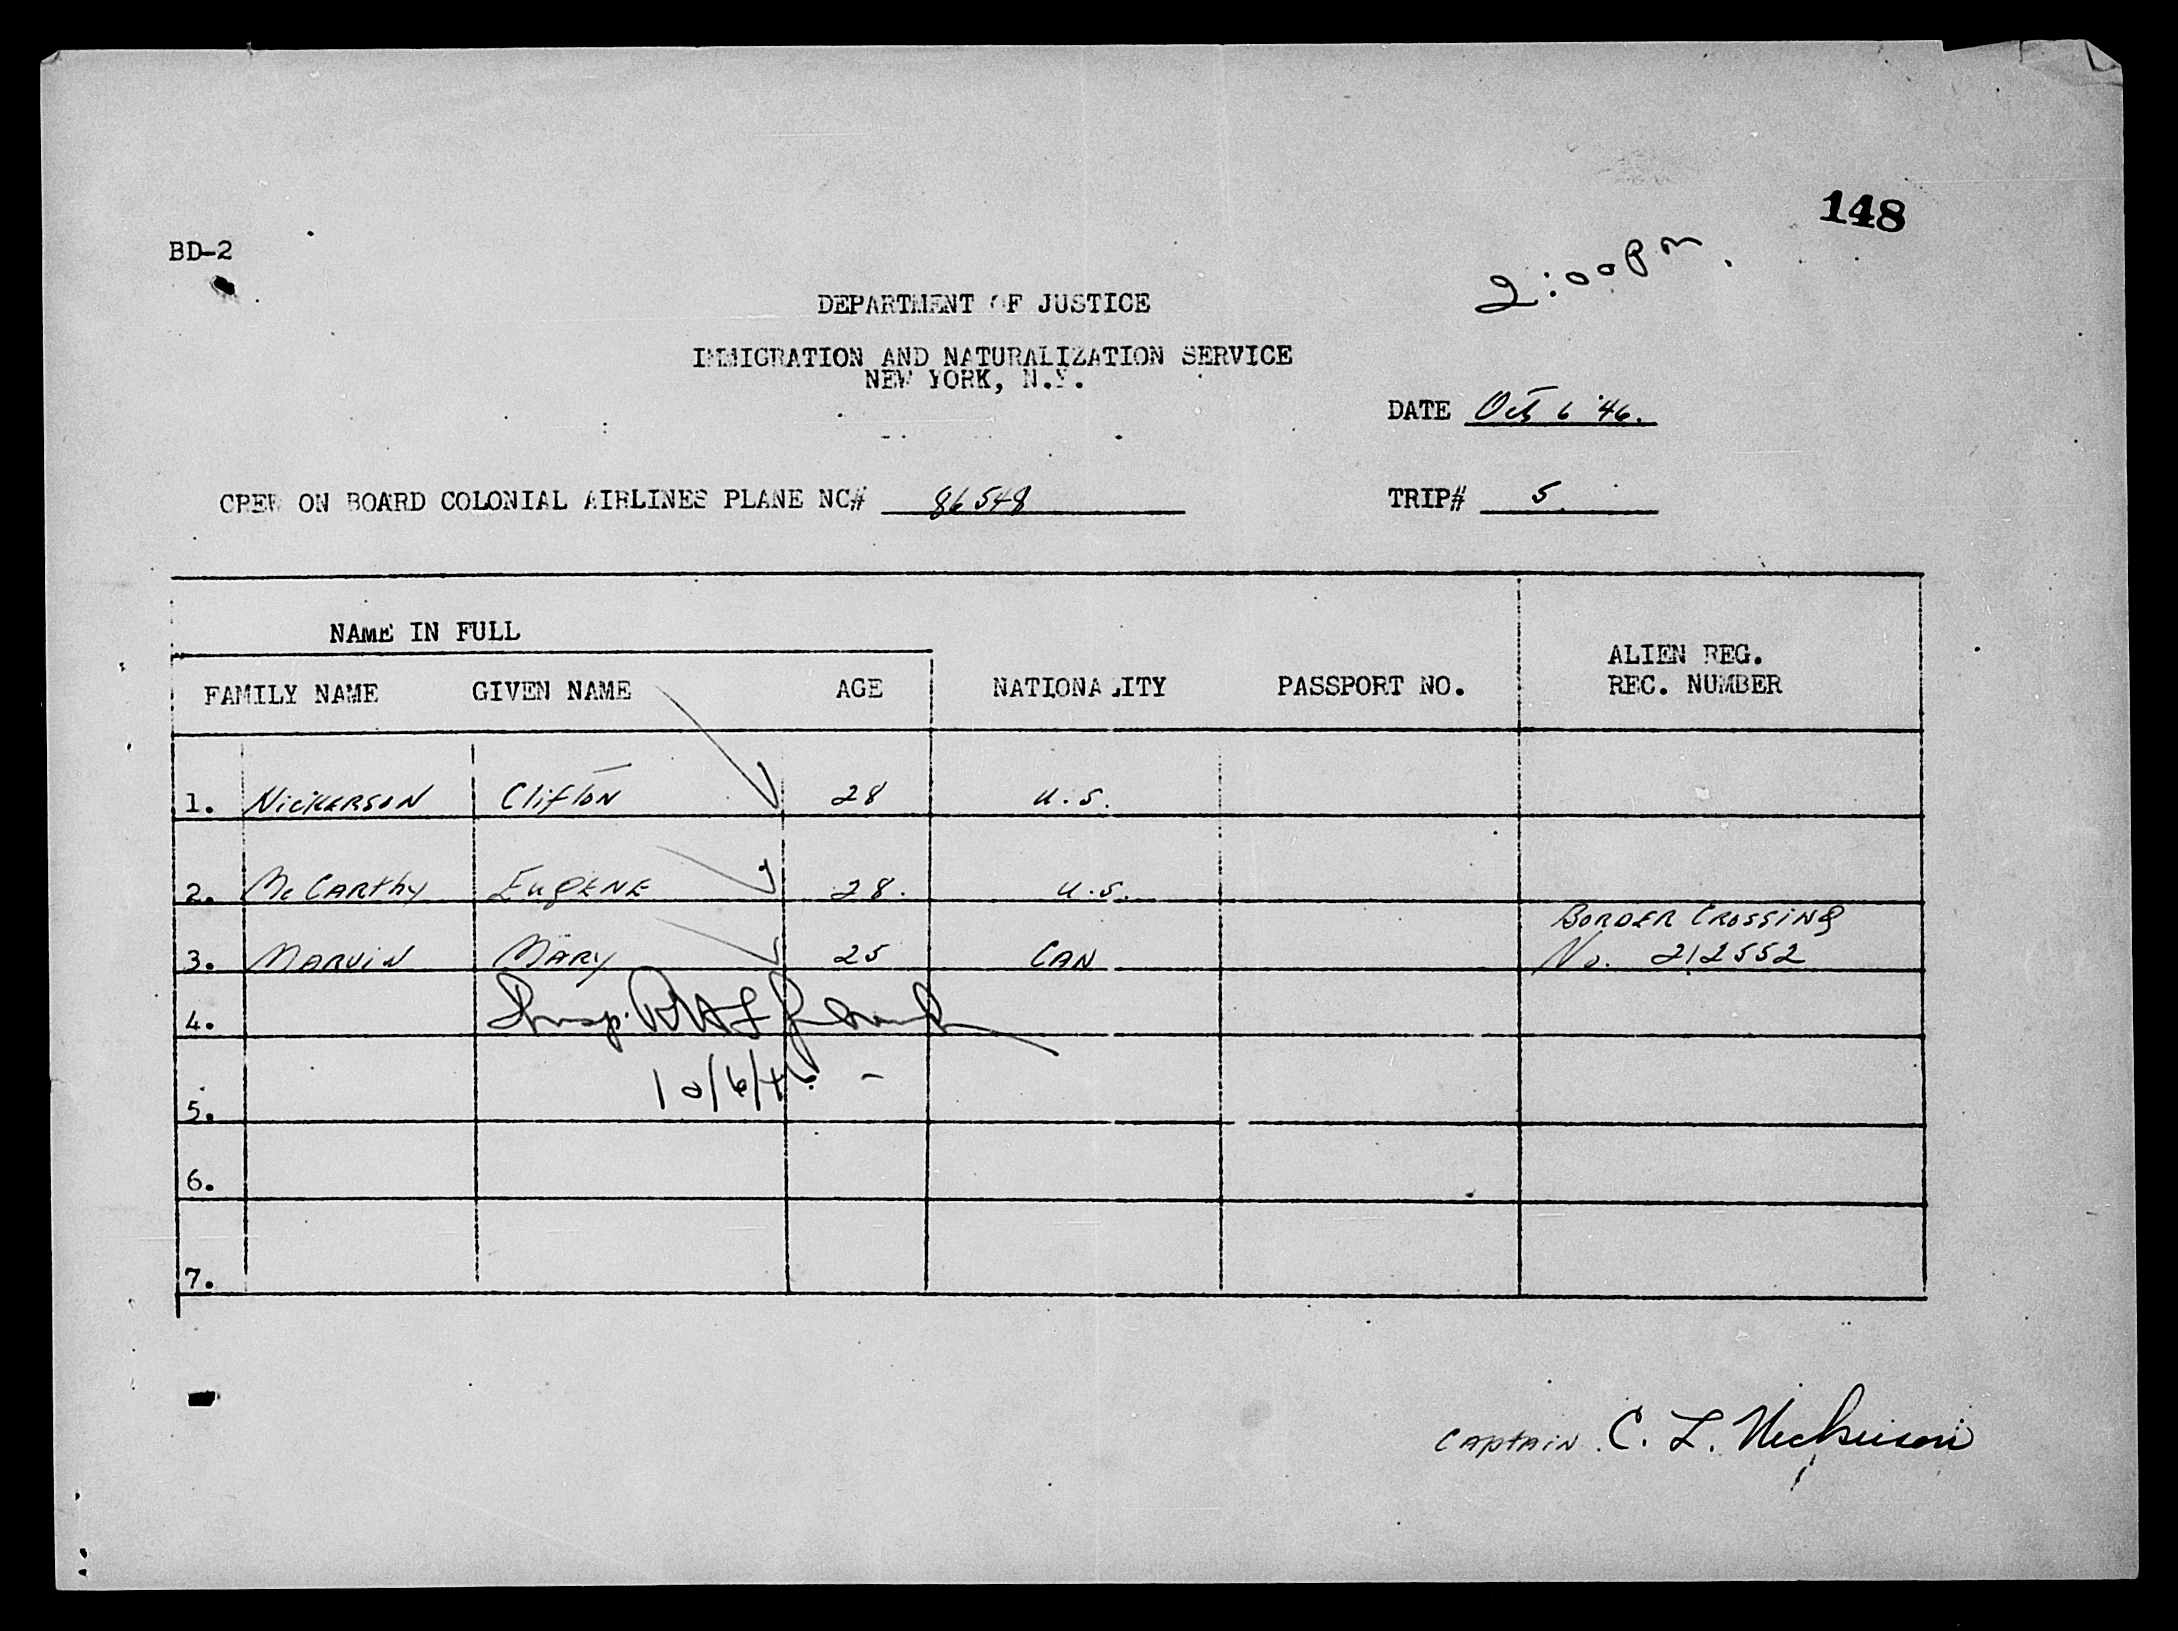 148
BD-2
2:00 PM.
DEPARTMENT OF JUSTICE
IMMIGRATION AND NATURALIZATION SERVICE
NEW YORK, N.Y.
DATE Oct 6 '46.
CREW ON BOARD COLONIAL AIRLINES PLANE NC# 86548
TRIP# 5
NAME IN FULL
FAMILY NAME GIVEN NAME AGE NATIONALITY PASSPORT NO. ALIEN REG. REC. NUMBER
1. Nickerson Clifton 28 U.S.
2. McCarthy Eugene 28. U.S.
3. Marvin Mary 25 CAN Border Crossing No. 212552
4. Insp.
10/6/46
5.
6.
7.
Captain C. L. Nickerson